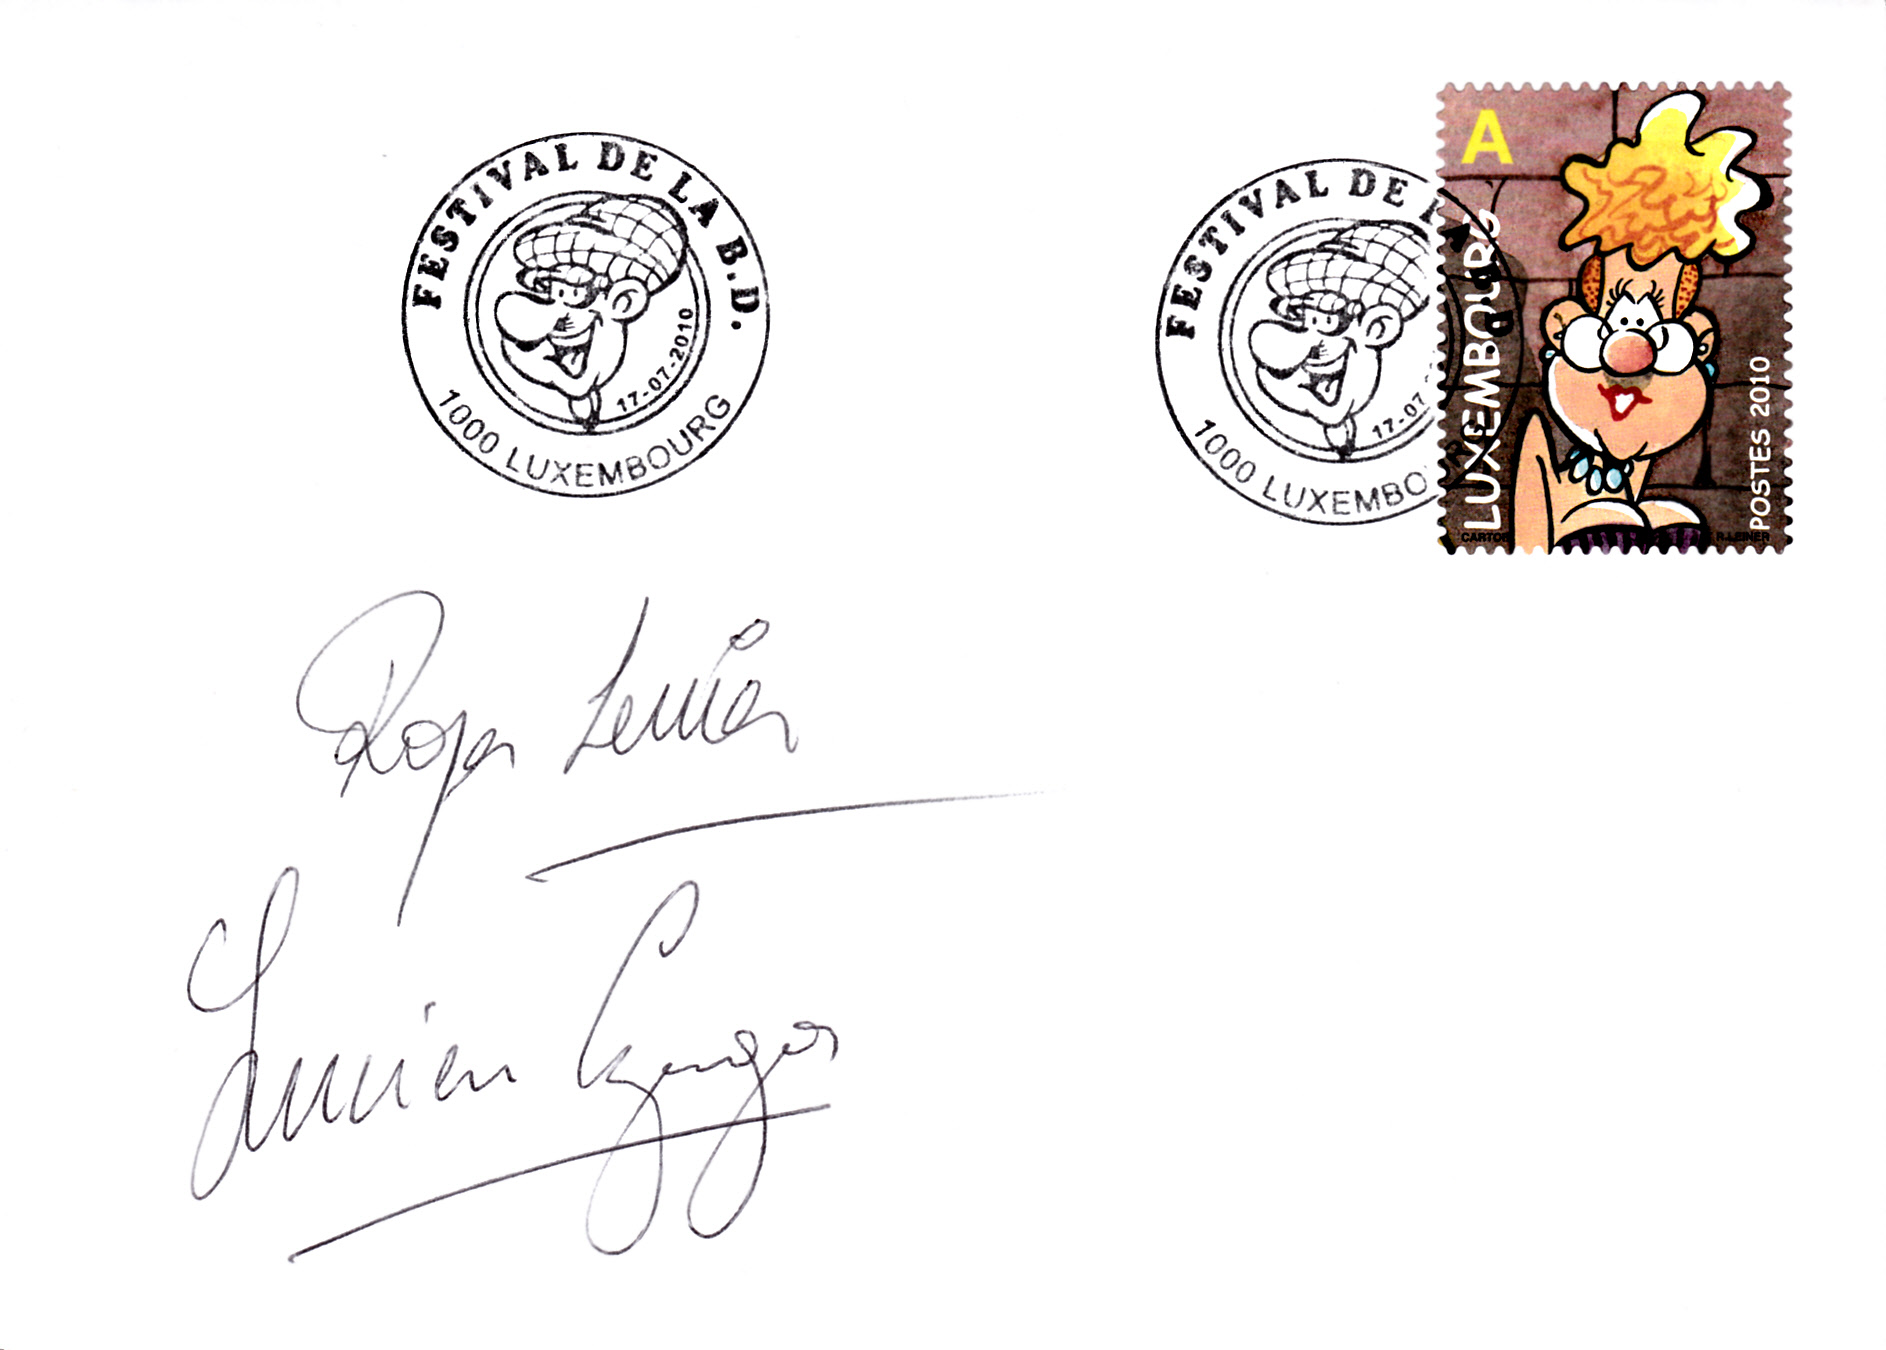 FESTIVAL DE LA B.D.
17-07-2010
1000 LUXEMBOURG
FESTIVAL DE LA B.D.
17-07
1000 LUXEMBOURG
A
LUXEMBOURG
POSTES 2010
CARTOR
R.LEINER
Roger Leiner
Lucien Czuga